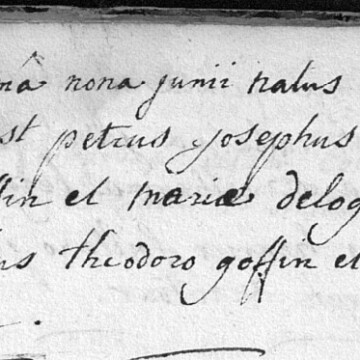 mâ nona junii natus
st petrus josephus
fin et mariæ delog
us theodoro goffin et